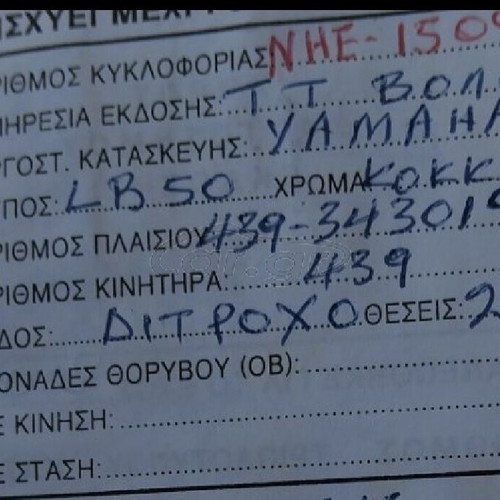 ΙΣΧΥΕΙ ΜΕΧΡΙ
ΡΙΘΜΟΣ ΚΥΚΛΟΦΟΡΙΑΣ: ΝΗΕ-150
ΠΗΡΕΣΙΑ ΕΚΔΟΣΗΣ: ΤΤ ΒΟΛ
ΡΓΟΣΤ. ΚΑΤΑΣΚΕΥΗΣ: YAMAHA
ΠΟΣ: LB 50 ΧΡΩΜΑ ΚΟΚΚ
ΡΙΘΜΟΣ ΠΛΑΙΣΙΟΥ 439-343019
ΡΙΘΜΟΣ ΚΙΝΗΤΗΡΑ: 439
ΔΟΣ: ΔΙΤΡΟΧΟ ΘΕΣΕΙΣ: 2
ΟΝΑΔΕΣ ΘΟΡΥΒΟΥ (OB):
Ε ΚΙΝΗΣΗ:
Ε ΣΤΑΣΗ: